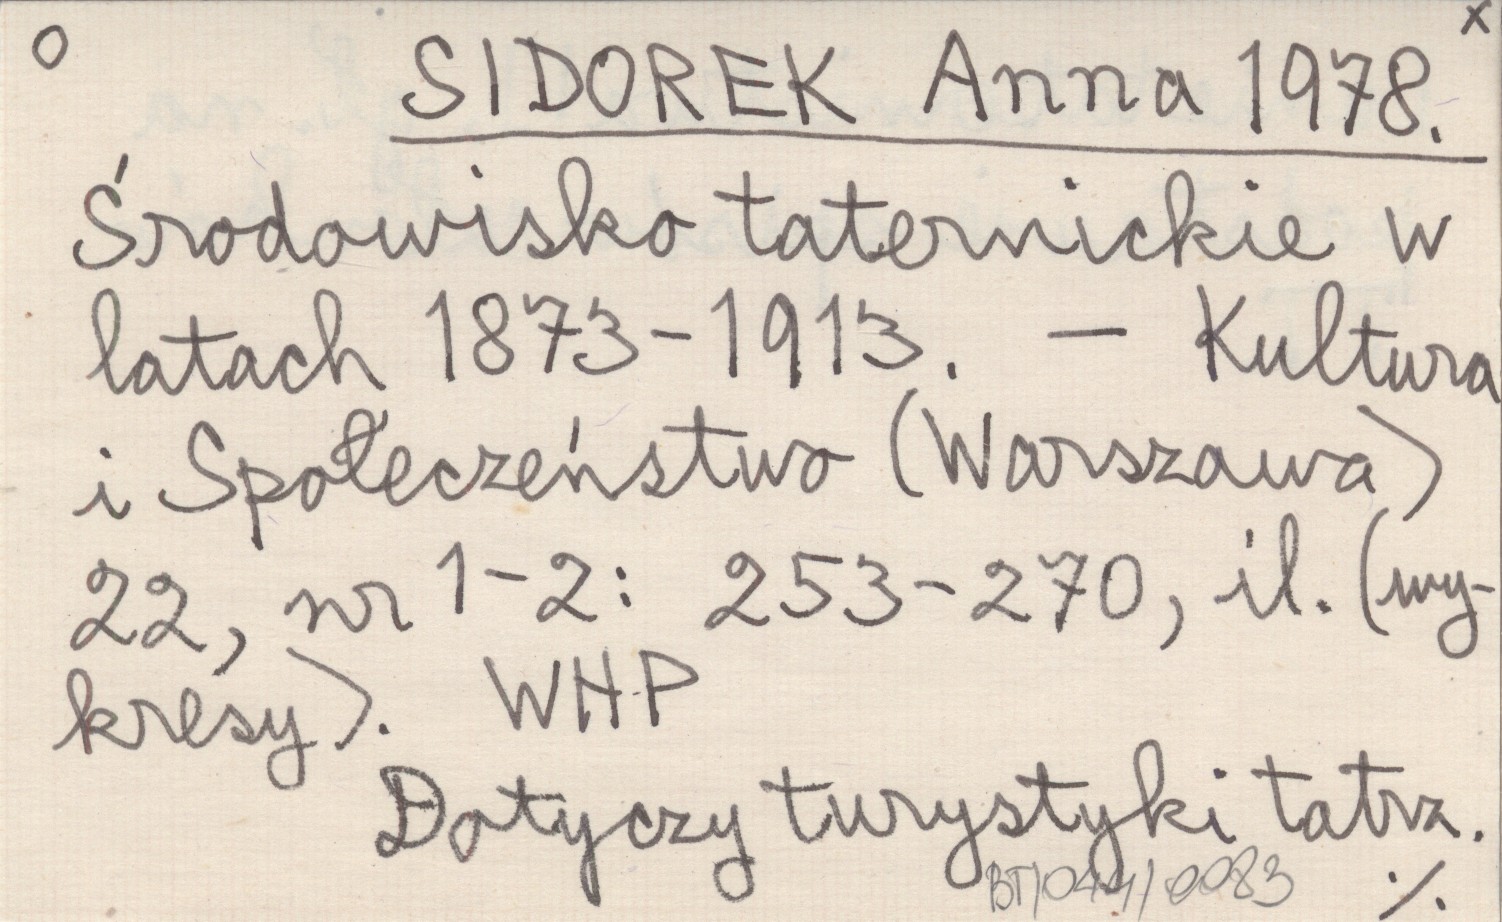 O x
SIDOREK Anna 1978.
Środowisko taternickie w
latach 1873-1913. — Kultura
i Społeczeństwo (Warszawa)
22, nr 1-2: 253-270, il. (wy-
kresy). WHP
Dotyczy turystyki tatrz.
./.